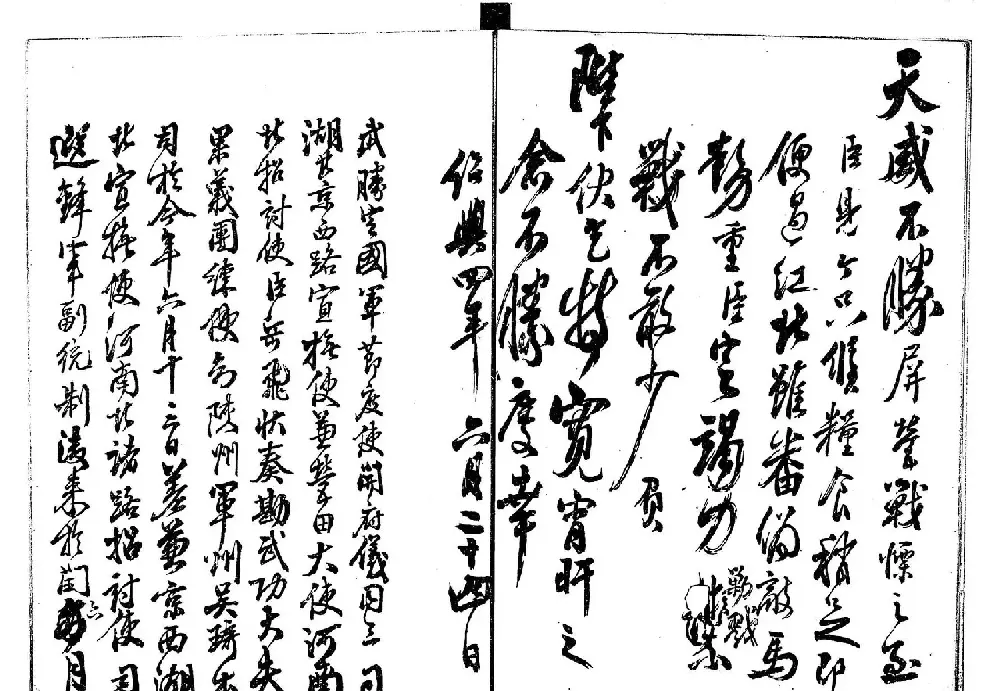 天威不勝屏營戰慄之至
臣見今只候糧食稍足即
便過江北雖番偽敵馬
勢重臣定竭力
勦戮
戰不敢少負
陛下伏乞特寬宵旰之
念不勝慶幸
紹興四年六月二十四日
武勝定國軍節度使開府儀同三司
湖北京西路宣撫使兼營田大使河南
北招討使臣岳飛狀奏勘武功大夫
果義團練使知陝州軍州吳琦
司於今年六月十三日差兼京西湖
北宣撫使河南北諸路招討使司
選鋒軍副統制湊來於 月